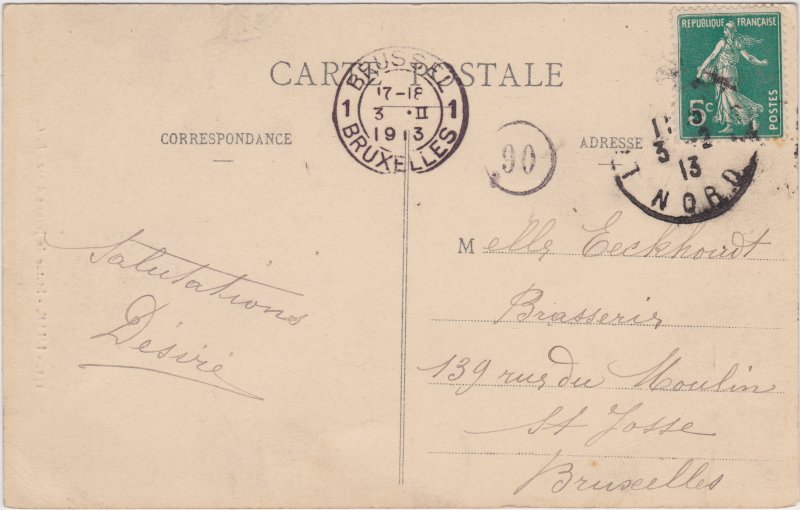 CARTE POSTALE
BRUSSEL
17-18
1 3 · II 1
1913
BRUXELLES
REPUBLIQUE FRANÇAISE
5c
POSTES
3 2
13
NORD
90
CORRESPONDANCE
ADRESSE
Salutations
Désiré
Melle Eeckhoudt
Brasserie
139 rue du Moulin
St Josse
Bruxelles